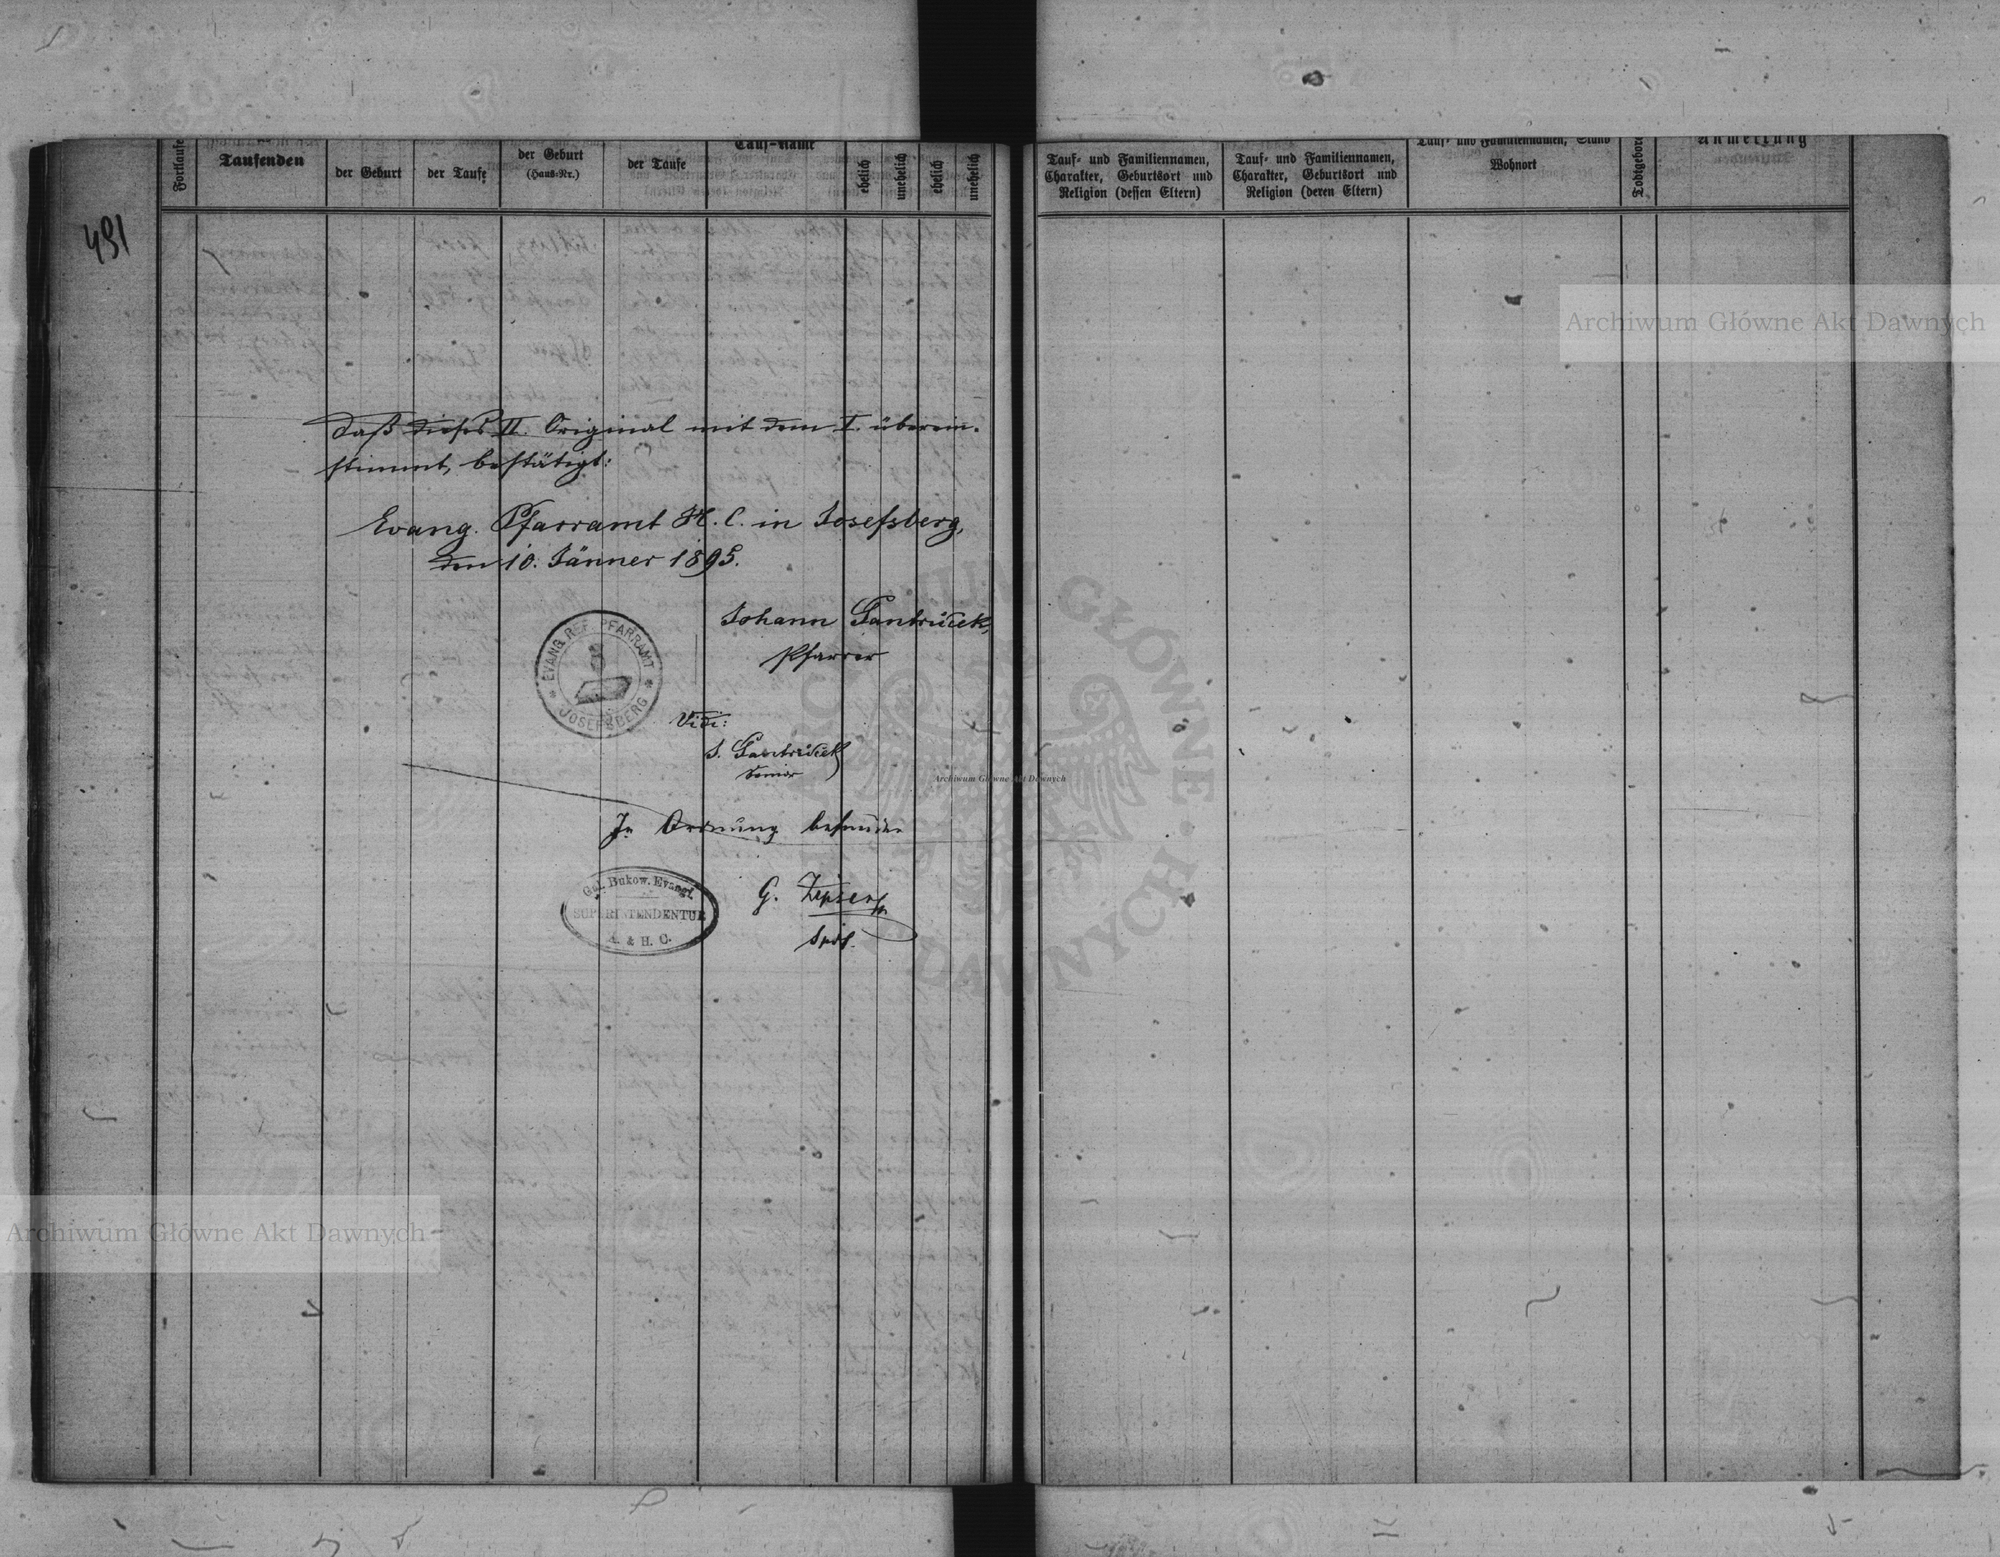 491
Fortlaufe
Taufenden
der Geburt
der Taufe
der Geburt
(Haus-Nr.)
der Taufe
Tauf-Name
ehelich
unehelich
ehelich
unehelich
Tauf- und Familiennamen,
Charakter, Geburtsort und
Religion (dessen Eltern)
Tauf- und Familiennamen,
Charakter, Geburtsort und
Religion (deren Eltern)
Tauf- und Familiennamen, Stand
Wohnort
Todtgebore
Anmerkung
Daß dieses II. Original mit dem I. überein-
stimmt, bestätigt:
Evang. Pfarramt H. C. in Josefsberg,
den 10. Jänner 1895.
Johann Fantrücek,
Pfarrer
EVANG. REF. PFARRAMT
* JOSEFSBERG *
Vidi:
J. Fantrücek
Senior
In Ordnung befunden
Gal. Bukow. Evangl.
SUPERINTENDENTUR
A. & H. C.
G. Zipser
Archiwum Główne Akt Dawnych
Archiwum Główne Akt Dawnych
Archiwum Główne Akt Dawnych
ARCHIWUM GŁÓWNE AKT DAWNYCH